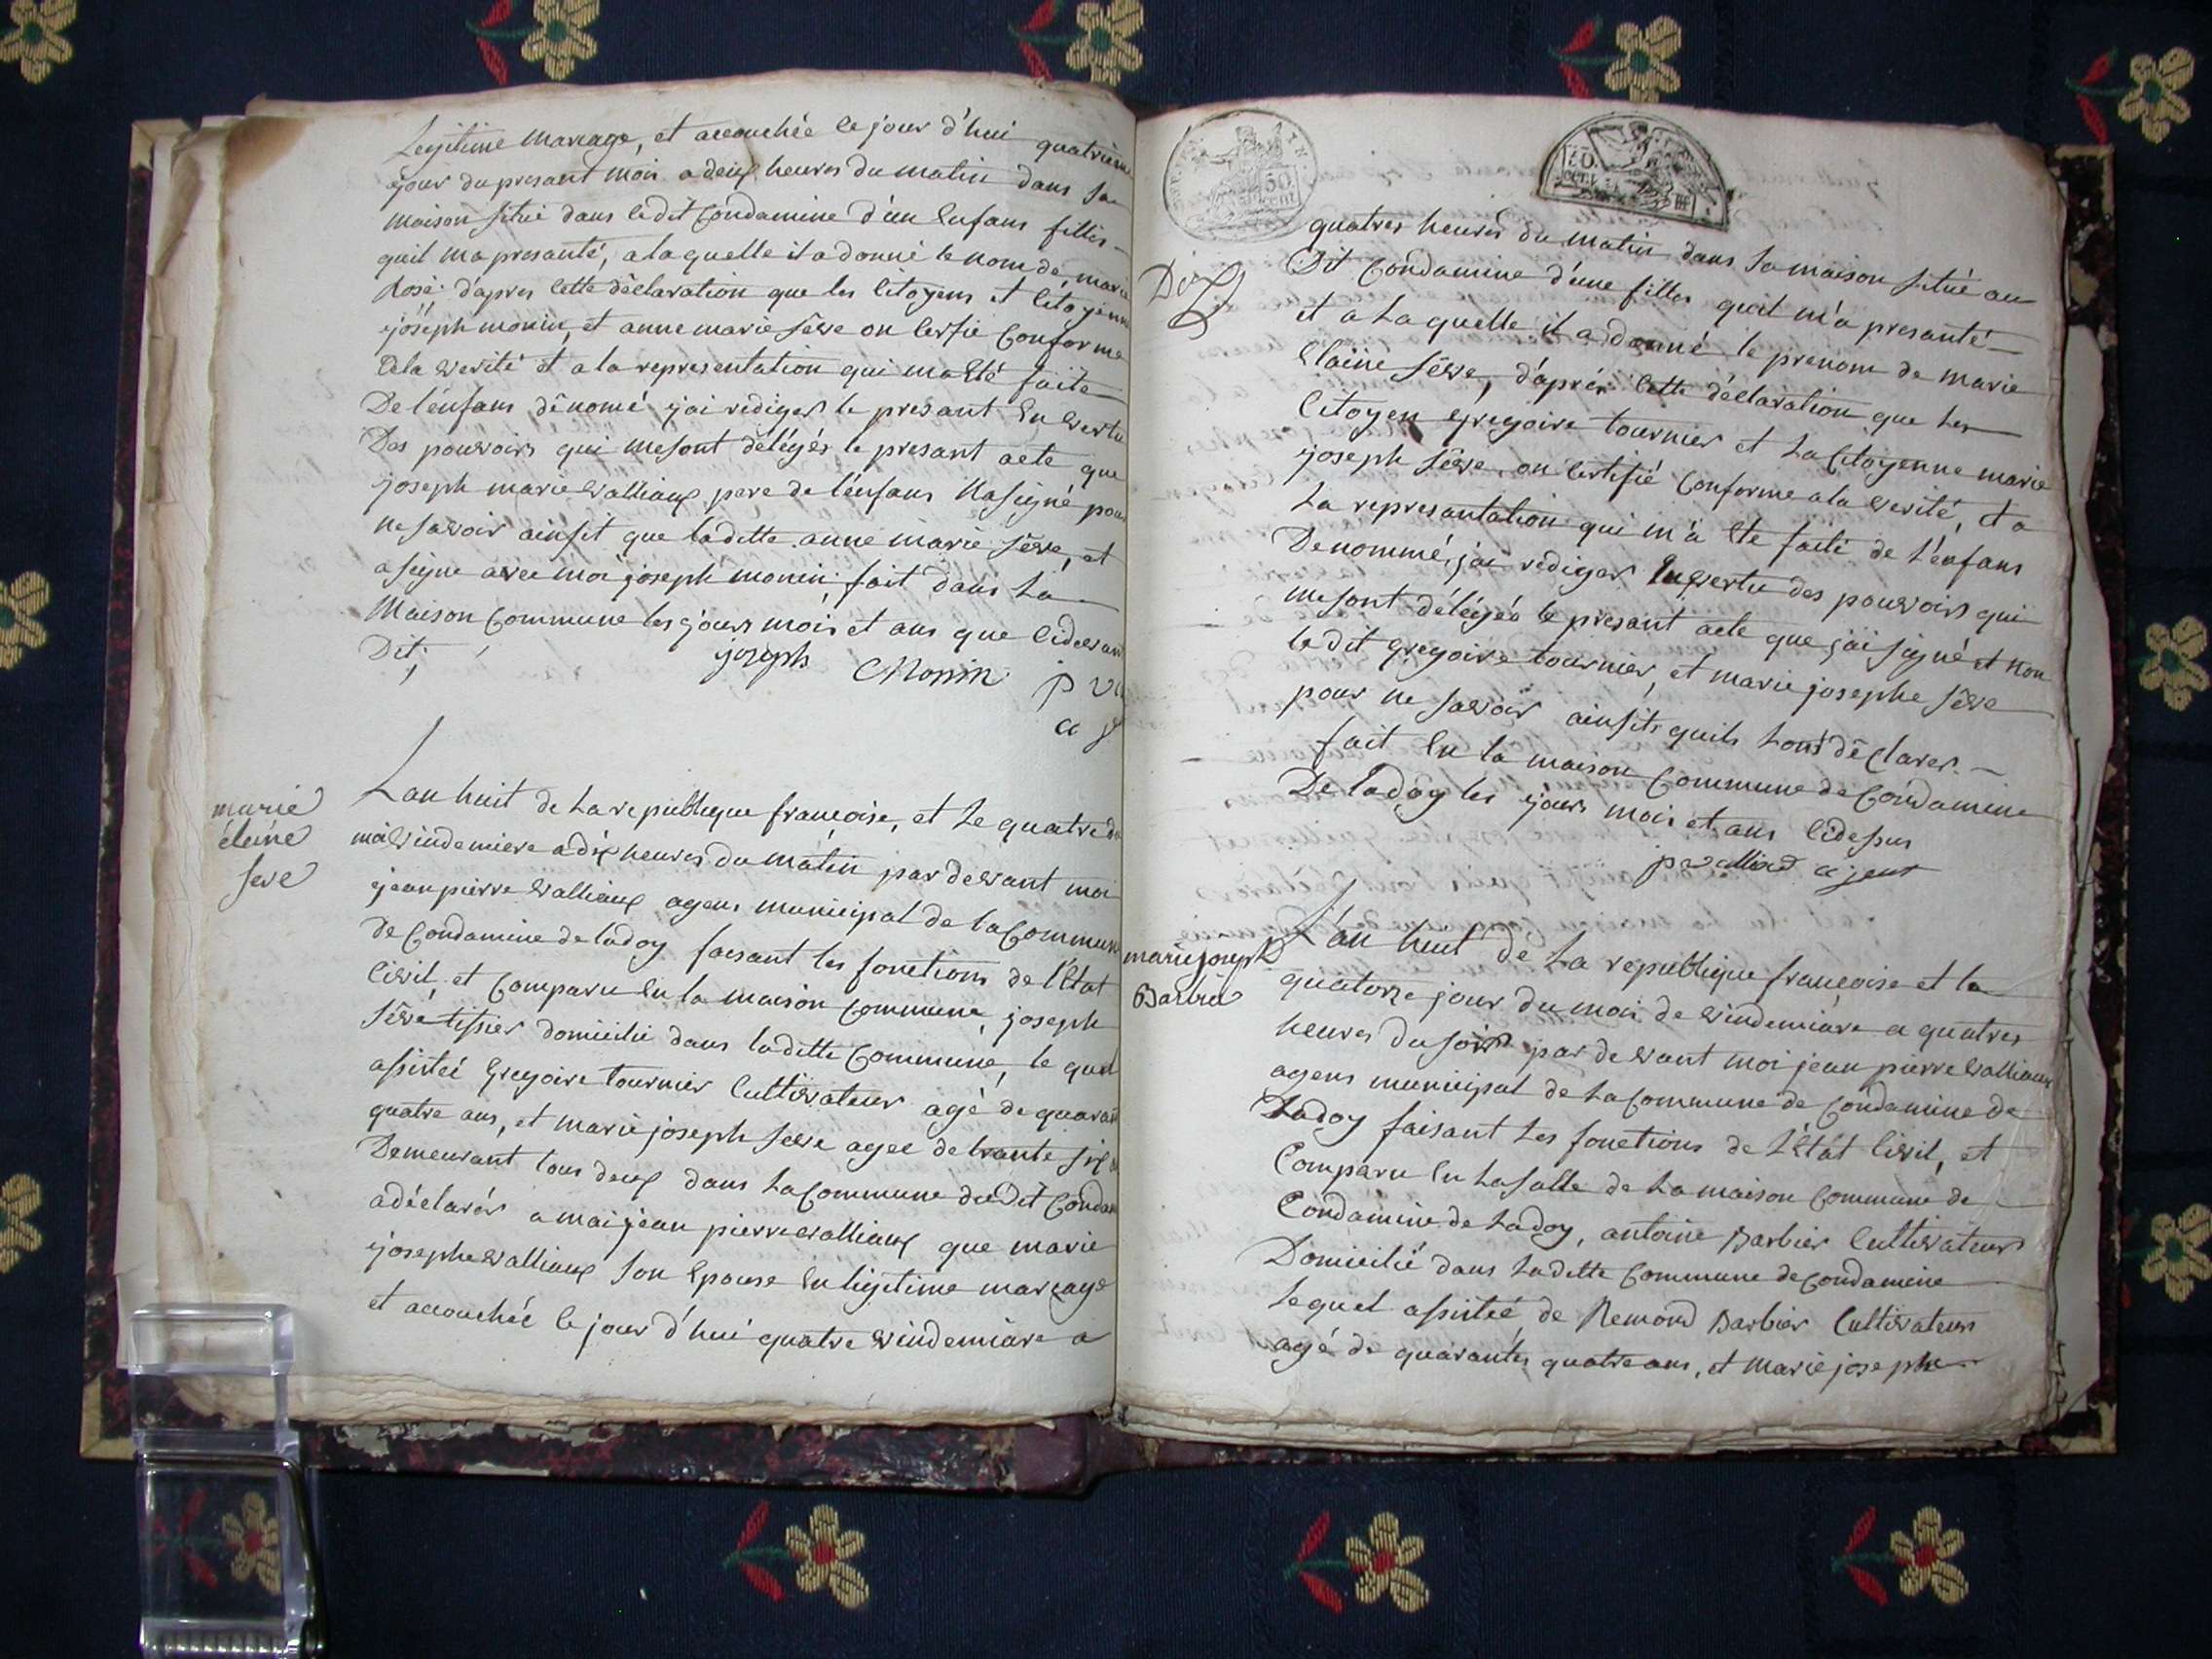 Legitime mariage, et accouchée le jour d'hui quatrieme
jour du presant mois a deux heures du matin dans sa
maison situé dans le dit Condamine d'un Enfans filles
quil ma presanté, a la quelle il a donné le nom de marie
Rose d'apres Cette déclaration que les Citoyens et Citoyenne
joseph monin, et anne marie séve on Certfie Conforme
a la verité et a la representation qui ma été faite
De lénfans dénomé jai rediger le presant En vertu
Des pouvoirs qui me sont délégés le presant acte que
joseph marie valliaux pere de lénfans Na signé pour
ne savoir ainsit que ladette anne marie séve, et
a signe avec moi joseph monin; fait dans La
Maison Commune les jours mois et ans que Cidevan
Dit;
joseph Monin
marie
éleine
seve
Lan huit de La republique françoise, et Le quatre du
mois vindemiere a dix heures du matin par devant moi
jean pierre valliaux agens municipal de la Commune
de Condamine de ladoy faisant les fonctions de l'Etat
Civil, et Comparu En la maison Commune, joseph
séve tissier domicilie dans ladette Commune, le quel
assistéé Gregoire tournier Cultivateur agé de quarant
quatre ans, et marie joseph seve agee de trante six
Demeurant tous deux dans La Commune du Dit Condam
a déclarés a moi jean pierre valliaux que marie
josephe valliaux son Epouse En ligitime mariage
et accouchée le jour d'hui quatre vindemiàre a
50
cent
50
cent
quatres heures du matin dans sa maison situé au
Dit Condamine d'une filles quil m'a presanté
et a La quelle il a donné le prenom de marie
Elaine séve, d'aprés Cette déclaration que les
Citoyen gregoire tournier et La Citoyenne marie
joseph séve on Certifié Conforme a la verité, et a
La represantation qui m'a Ete faite de l'énfans
Denommé, jai rediger En vertu des pouvoirs qui
me sont délégés le presant acte que j'ai signé et non
le dit gregoire tournier, et marie josephe séve
pour ne savoir ainsits quils Lont déclarer.
fait En la maison Commune de Condamine
De ladoy les jours mois et ans Cidessus
marie joseph
Barbier
L'an huit de La republique françoise et le
quatorze jour du mois de vindemiàre a quatres
heures du soir par devant moi jean pierre valliaux
agens municipal de La Commune de Condamine de
Ladoy faisant Les fonctions de L'Etat Civil, et
Comparu En La salle de La maison Commune de
Condamine de Ladoy, antoine Barbier Cultivateur
Domicilié dans Ladette Commune de Condamine
Lequel assistéé de Remond Barbier Cultivateur
agé de quarantes quatre ans, et marie josephe